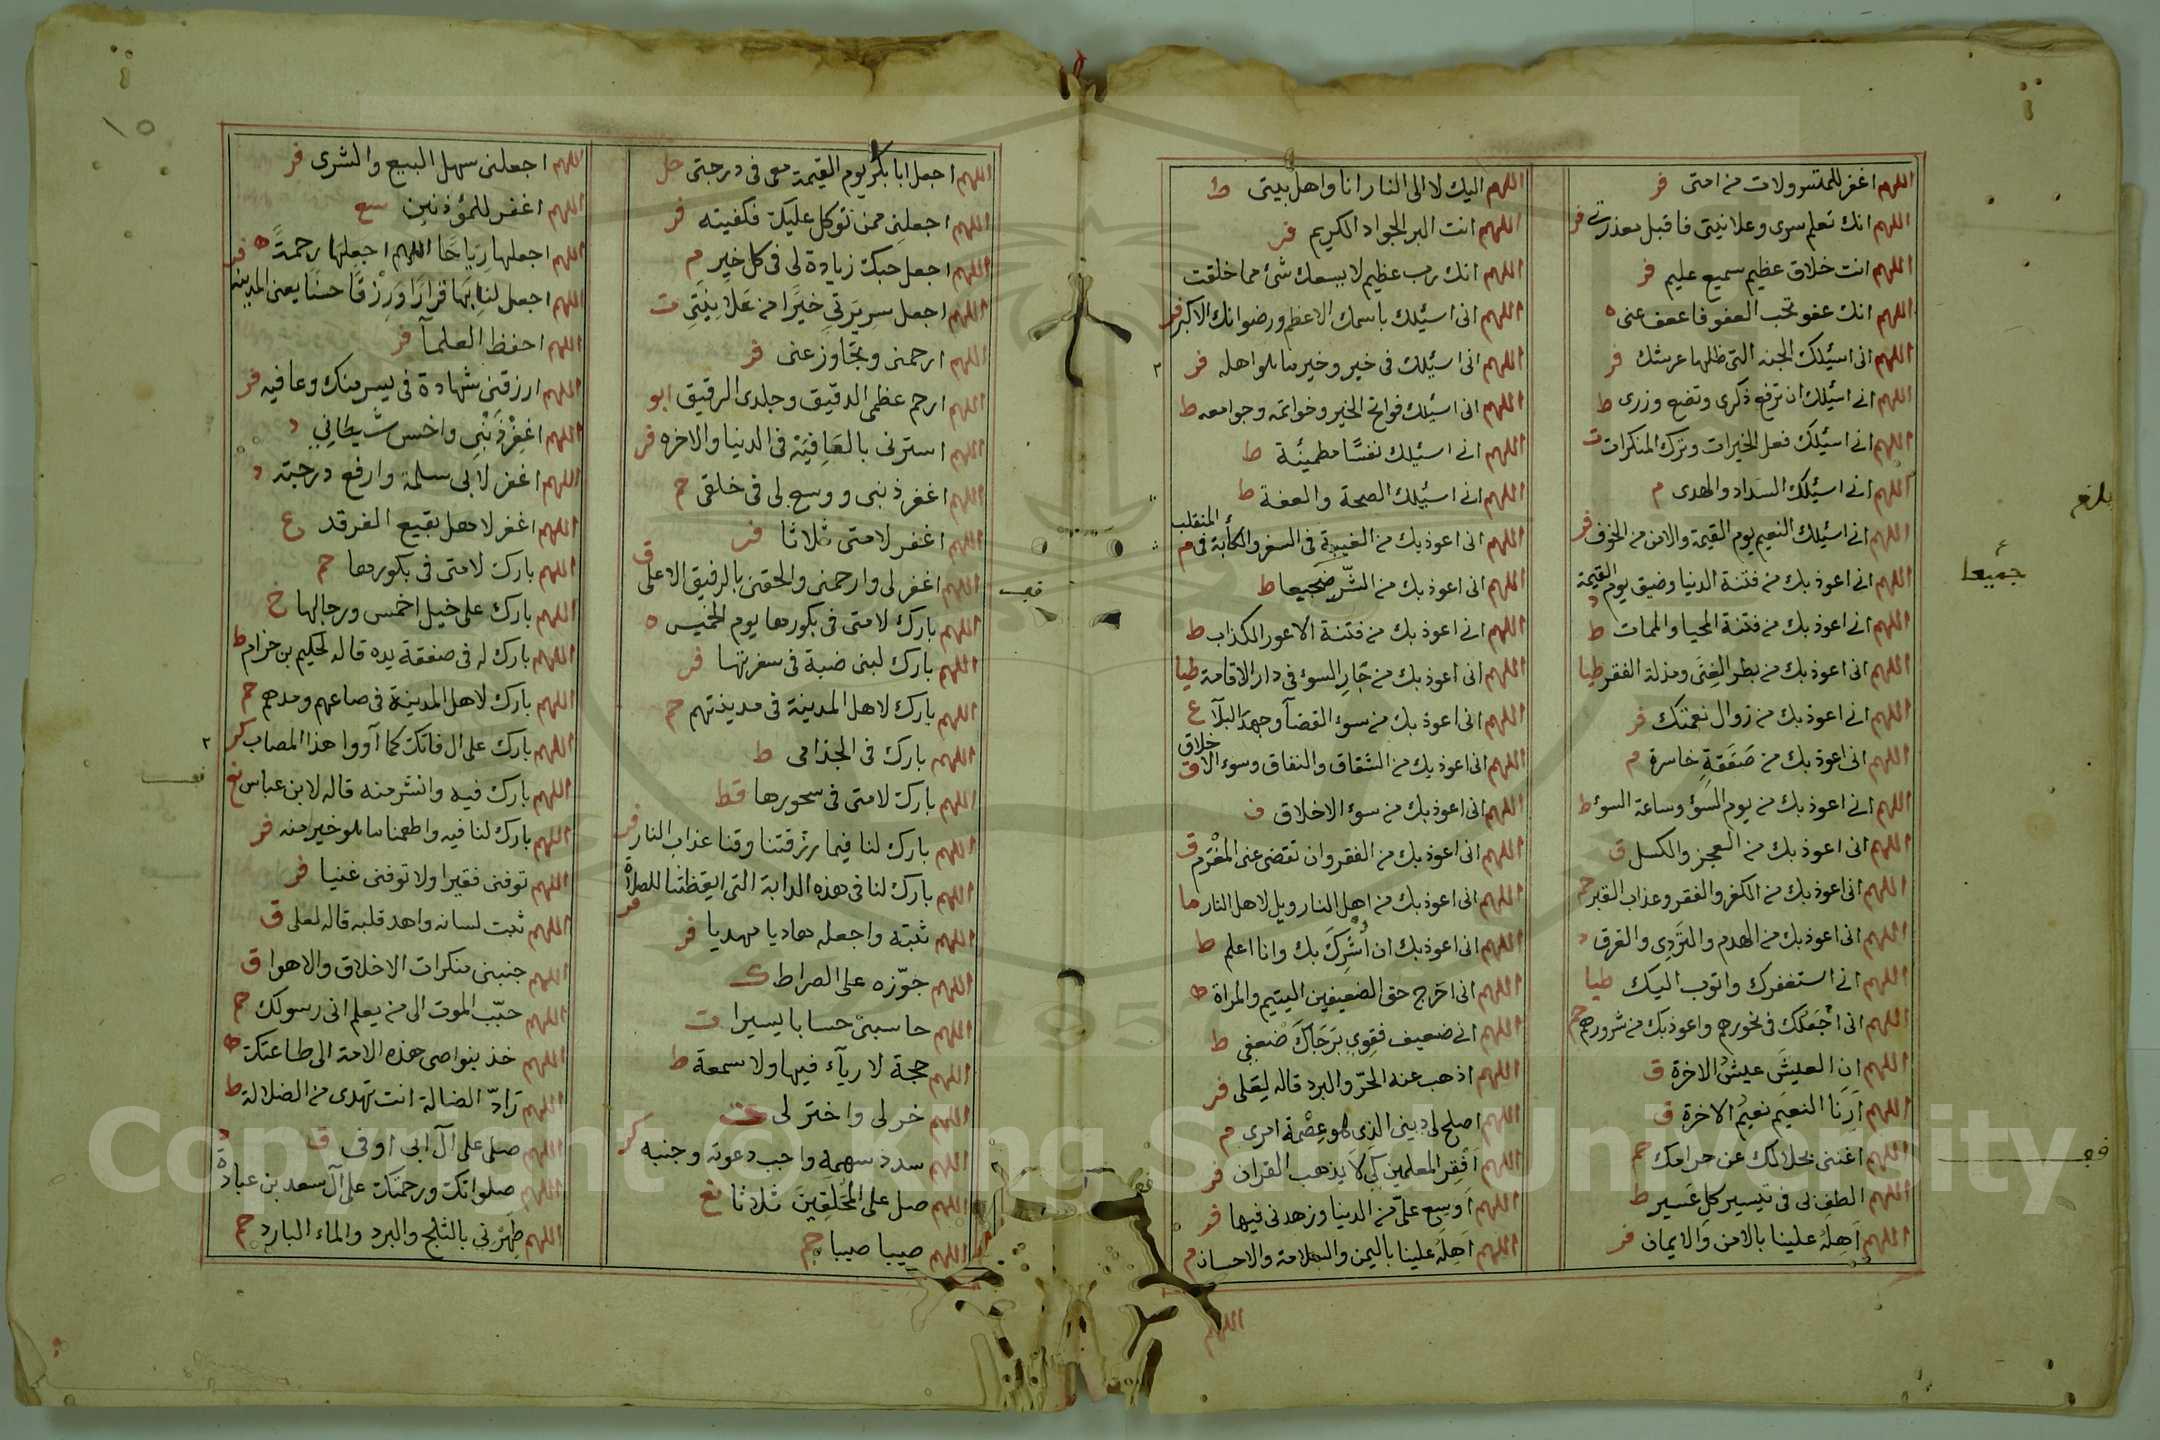 اللهم اغفر للمتسرولات من امتى فر
اللهم انك تعلم سرى وعلانيتى فاقبل معذرتى فر
اللهم انت خلاق عظيم سميع عليم فر
اللهم انك عفو تحب العفو فاعف عنى ه
اللهم انى اسئلك الجنه التى ظلها عرشك فر
اللهم انى اسئلك ان ترفع ذكرى وتضع وزرى ط
اللهم انى اسئلك فعل الخيرات وترك المنكرات ت
اللهم انى اسئلك السداد والهدى م
اللهم انى اسئلك النعيم يوم القيمة والامن من الخوف فر
اللهم انى اعوذ بك من فتنة الدنيا وضيق يوم القيمة د
اللهم انى اعوذ بك من فتنة المحيا والممات ط
اللهم انى اعوذ بك من بطر الغِنَى ومذلة الفقر طيا
اللهم انى اعوذ بك من زوال نعمتك فر
اللهم انى اعوذ بك من صَفَقةٍ خاسرة م
اللهم انى اعوذ بك من يوم السَوْء وساعة السوء ط
اللهم انى اعوذ بك من العجز والكسل ق
اللهم انى اعوذ بك من الكفر والفقر وعذاب القبر حم
اللهم انى اعوذ بك من الهدم والتردى والغرق د
اللهم انى استغفرك واتوب اليك طيا
اللهم انى اجْعَلك فى نحورهم واعوذ بك من شرورهم حم
اللهم ان العيشَ عيشُ الاخرة ق
اللهم اَرِنا النعيمَ نعيمَ الاخرة ق
اللهم اغننى بحلالك عن حرامك حم
اللهم الطف لى فى تيسير كل عَسير ط
اللهم اَهِلهُ علينا بالامن والايمان فر
اللهم اليك لا الى النار انا واهل بيتى ط
اللهم انت البر الجواد الكريم فر
اللهم انك رب عظيم لا يسعك شئ مما خلقت
اللهم انى اسئلك باسمك الاعظم ورضوانك الاكبر فر
اللهم انى اسئلك فى خير وخير ما هو اهله فر
اللهم انى اسئلك فواتح الخير وخواتمه وجوامعه ط
اللهم انى اسئلك نفسًا مطمئنة ط
اللهم انى اسئلك الصحة والعفة ط
اللهم انى اعوذ بك من الغيبة فى السفر والكأبة فى المنقلب م
اللهم انى اعوذ بك من الشّرِ ضَجيعا ط
اللهم انى اعوذ بك من فتنة الاعور الكذاب ط
اللهم انى اعوذ بك من جَارِ السوء فى دار الاقامة طيا
اللهم انى اعوذ بك من سوء القضآ وجهد البلآ ع
اللهم انى اعوذ بك من الشقاق والنفاق وسوء الاخلاق ق
اللهم انى اعوذ بك من سوء الاخلاق ف
اللهم انى اعوذ بك من الفقر وان تقضى عنى المغْرَم ق
اللهم انى اعوذ بك من اهل النار ويل لاهل النار ما
اللهم انى اعوذ بك ان اُشْرِكَ بك وانا اعلم ط
اللهم انى احَرج حق الضعيفين اليتيم والمراة ه
اللهم انى ضعيف فقوِى بَرَجَاكَ ضعفى ط
اللهم اذهب عنه الحرّ والبرد قاله ليَعلى فر
اللهم اصلح لى دينى الذى هو عِصْمَة امرى م
اللهم اَفْقِر المعلمين كى لا يذهب القران فر
اللهم اَوسع علىّ من الدنيا وزهدنى فيها فر
اللهم اَهِلهُ علينا باليمن والسلامة والاحسان م
اللهم
بلغ
جميعا
اللهم اجعل ابا بكر يوم القيمة معى فى درجتى حل
اللهم اجعلنى ممن توكل عليك فكفيته فر
اللهم اجعل حبك زيادة لى فى كل خير م
اللهم اجعل سريرتى خيرًا من عَلانيتى ت
اللهم ارحمنى وتجاوز عنى فر
اللهم ارحم عظمى الدقيق وجلدى الرقيق ابو
اللهم استرنى بالعَافِيَة فى الدنيا والاخره فر
اللهم اغفر ذنبى ووسع لى فى خلقى حم
اللهم اغفر لامتى ثلاثا فر
اللهم اغفر لى وارحمنى والحقنى بالرفيق الاعلى ق
اللهم بارك لامتى فى بكورها يوم الخميس ه
اللهم بارك لبنى ضبة فى سفرتها فر
اللهم بارك لاهل المدينة فى مدينتهم حم
اللهم بارك فى الجذامى ط
اللهم بارك لامتى فى سحورها قط
اللهم بارك لنا فيما رزقتنا وقنا عذاب النار فر
اللهم بارك لنا فى هذه الدابة التى ايقظتنا للصلاة فر
اللهم ثبته واجعله هاديا مهديا فر
اللهم جوّزه على الصراط ك
اللهم حاسبنى حسابا يسيرا ت
اللهم حجة لا رياء فيها ولا سمعة ط
اللهم خر لى واختر لى ت
اللهم سدد سهمه واجب دعوته وجنبه كر
اللهم صل على المُحَلقِينَ ثلاثا نع
اللهم صيبا صيبا حم
اللهم اجعلنى سهل البيع والشرى فر
اللهم اغفر للمؤذنين سع
اللهم اجعلها رِيَاحًا اللهم اجعلها رحمةً ه
اللهم اجعل لنا بها قرارًا وَرِزْقًا حسنا يعنى المدينه فر
اللهم احفظ العلمآ فر
اللهم ارزقنى شهادة فى يسر منك وعافيه فر
اللهم اغفِرْ ذَنْبِى واخس شَيطَانِى د
اللهم اغفر لابى سلمة وارفع درجته د
اللهم اغفر لاهل بقيع الغرقد ع
اللهم بارك لامتى فى بكورها حم
اللهم بارك على خيل احمس ورجالها خ
اللهم بارك له فى صفقة يده قاله لحكيم بن حزام ط
اللهم بارك لاهل المدينة فى صاعهم ومدهم حم
اللهم بارك على ال فاتك كما آووا هذا المصاب كر
اللهم بارك فيه وانشر منه قاله لابن عباس نع
اللهم بارك لنا فيه واطعمنا ما هو خير منه فر
اللهم توفنى فقيرا ولا توفنى غنيا فر
اللهم ثبت لسانه واهد قلبه قاله لعلى ق
اللهم جنبنى منكرات الاخلاق والاهوا ق
اللهم حبّب الموت الى من يعلم انى رسولك حم
اللهم خذ بنواصى هذه الامة الى طاعتك ه
اللهم رَادّ الضالة انت تهدى من الضلالة ط
اللهم صل على آل ابى اوفى ق
اللهم صلواتك ورحمتك على آل سعد بن عبادة د
اللهم طهِرْنى بالثلج والبرد والماء البارد حم
١٥
Copyright © King Saud University